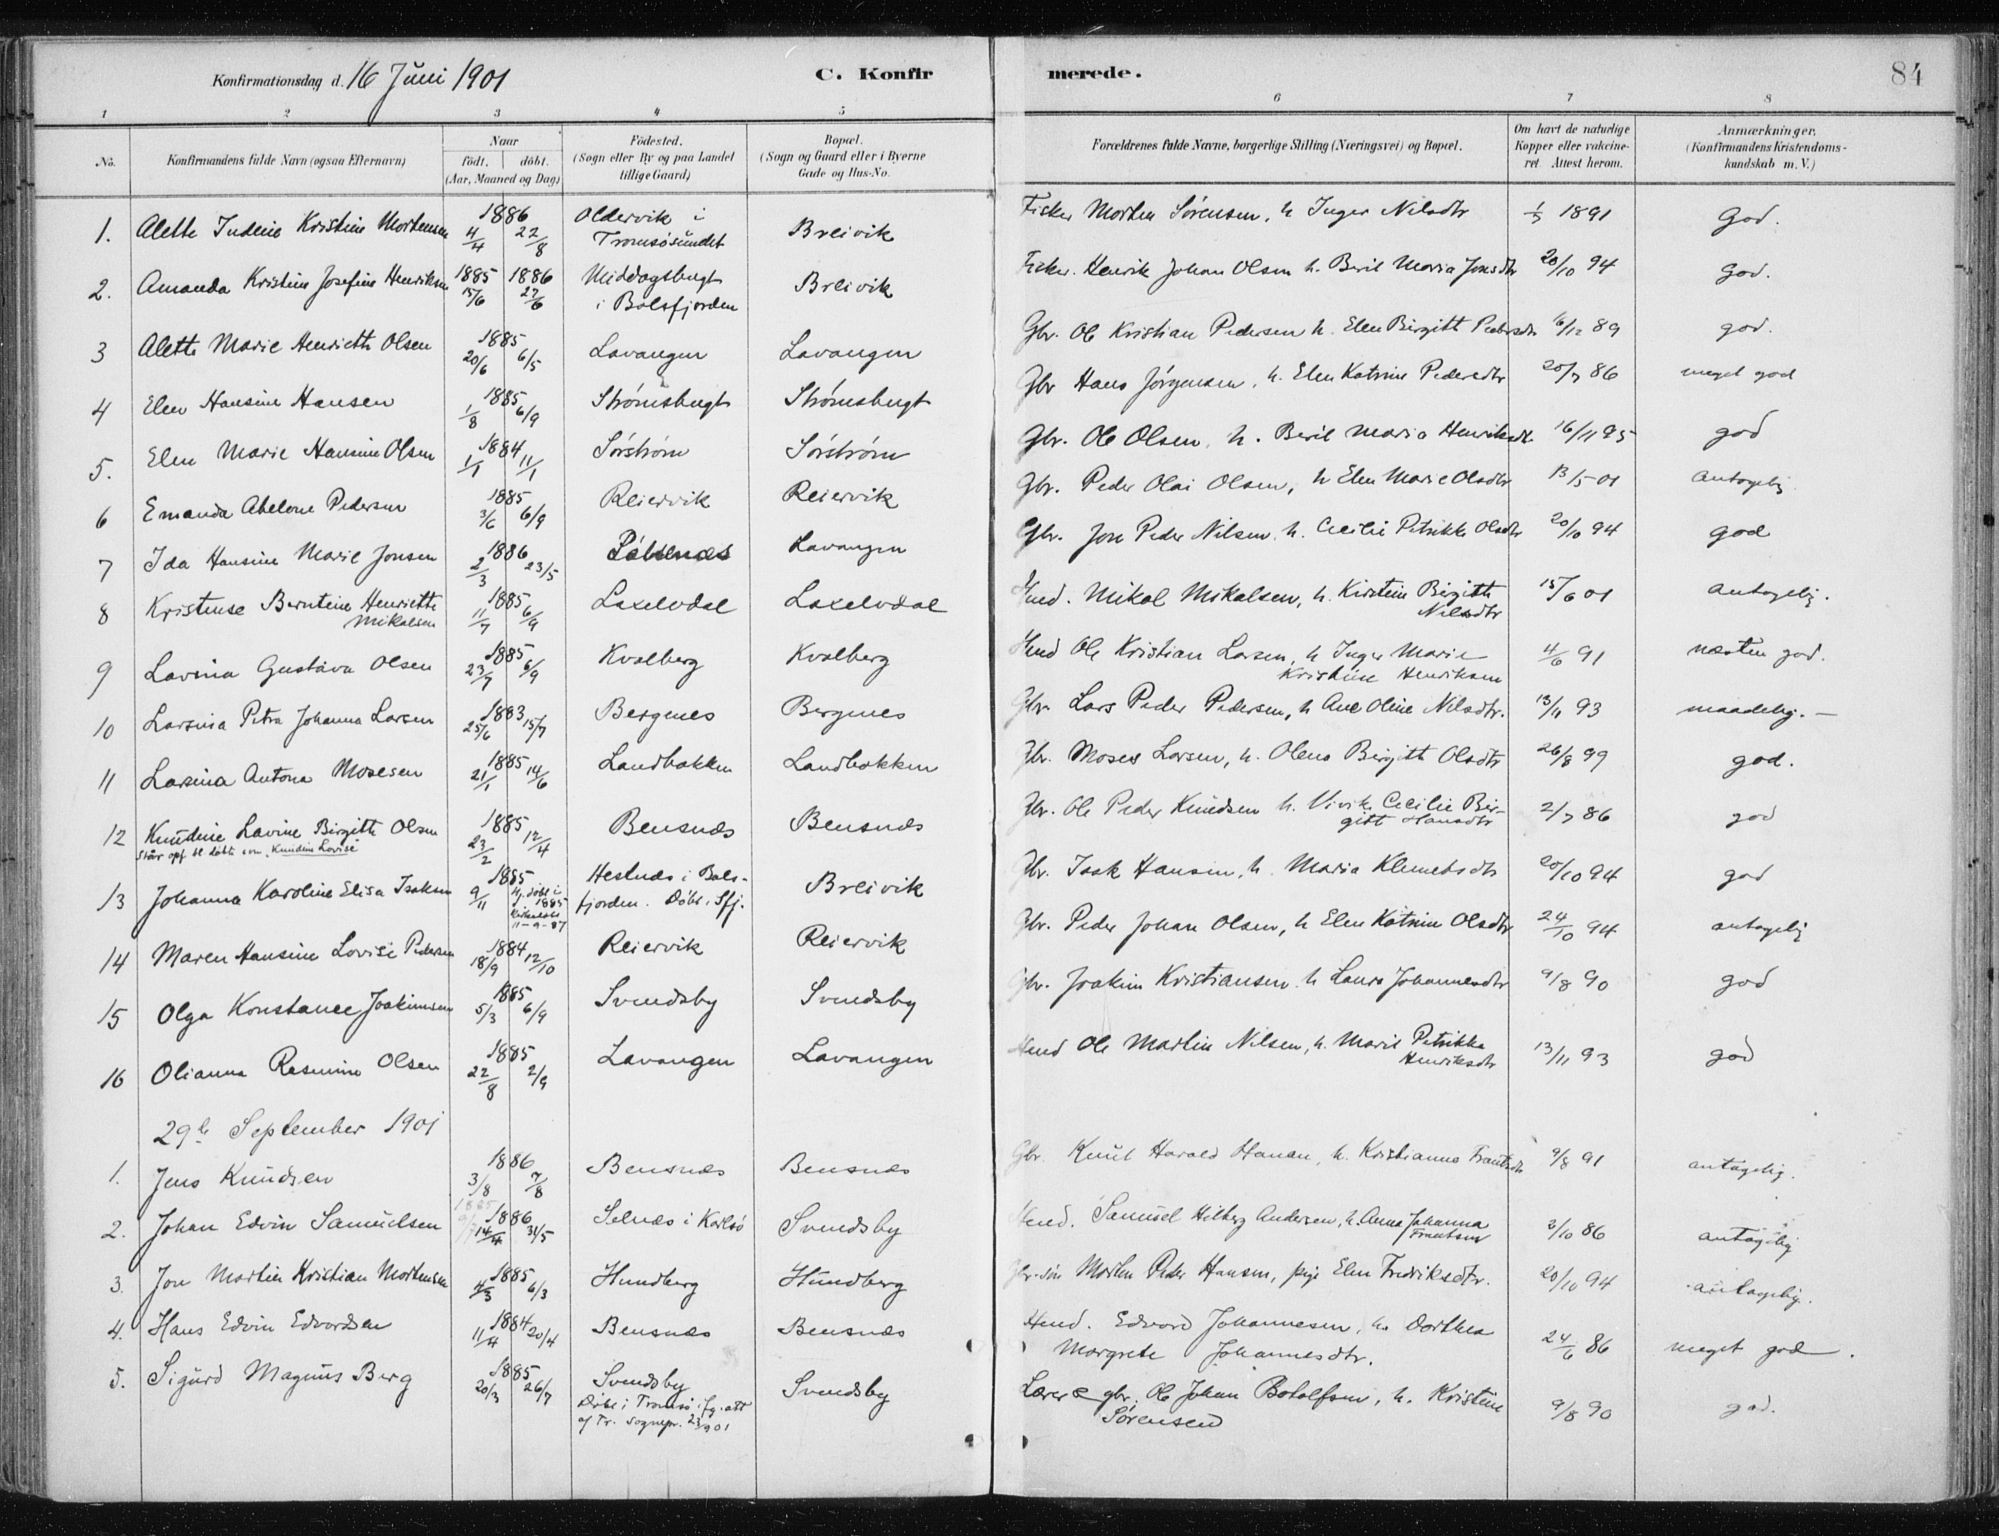 Konfirmationsdag d. 16 Juni 1901 C. Konfirmerede. 84
1 2 3 4 5 6 7 8
No. Konfirmandens fulde Navn (ogsaa Efternavn) Naar født. døbt. (Aar, Maaned og Dag) Fødested. (Sogn eller By og paa Landet tillige Gaard) Bopæl. (Sogn og Gaard eller i Byerne Gade og Hus-No. Forældrenes fulde Navne, borgerlige Stilling (Næringsvei) og Bopæl. Om havt de naturlige Kopper eller vaccineret. Attest herom. Anmærkninger. (Konfirmandens Kristendomskundskab m. V.)
1. Alette Kristine Mortensen 1886 4/4 22/8 Oldervik i Tromsøsundet Breivik Fisker Morten Sørensen, h. Inger Nilsdtr 1891 God.
2. Amanda Kristine Josefine Henriksen 1885 15/6 1886 27/6 Middagsbugt i Balsfjorden Breivik Fisker. Henrik Johan Olsen h. Beril Maria Jonsdtr 20/10 94 God.
3 Alette Marie Henriette Olsen 1885 20/6 6/5 Lavangen Lavangen Gbr. Ole Kristian Pedersen h. Elen Birgitt Pedersdtr 16/12 89 god.
4 Elen Hansine Hansen 1885 1/8 6/9 Strømsbugt Strømsbugt Gbr Hans Jørgensen, h. Elen Katrine Pedersdtr 20/7 86 meget god
5. Elen Marie Hansine Olsen 1884 1/1 11/1 Sørstrøm Sørstrøm Gbr. Ole Olsen, h. Beril Maria Henriksdtr 16/11 95 god
6 Emanda Abelone Pedersen 1885 3/6 6/9 Reiervik Reiervik Gbr. Peder Olai Olsen, h Elen Marie Olsdtr 13/5 01 antagelig
7 Ida Hansine Marie Jonsen 1886 2/3 23/5 Lavangen Gbr. Jon Peder Nilsen, h. Cecilie Petrikke Olsdtr 20/10 94 god
8 Kristense Berntine Henriette Mikalsen 1885 11/7 6/9 Lakselvdal Lakselvdal Hmd. Mikal Mikalsen, h. Kirstine Birgitte Nilsdtr 15/6 01 antagelig.
9 Lavina Gustava Olsen 1885 23/7 6/9 Kvalberg Kvalberg Hmd Ole Kristian Larsen, h Inger Marie Kristine Henriksen 4/6 91 næsten god.
10 Larsina Petra Johanna Larsen 1883 25/6 15/7 Bergenes Bergenes Gbr Lars Peder Pedersen, h Ane Oline Nilsdtr. 13/11 93 maadelig. —
11 Larsina Antona Mosesen 1885 21/1 14/6 Landbakken Landbakken Gbr. Moses Larsen, h. Olena Birgitte Olsdtr 26/8 99 god.
12 Knudine Lavine Birgitte Olsen 1885 23/2 12/4 Bensnæs Bensnæs Gbr. Ole Peder Knudsen h. Vivik Cecilie Birgitt Hansdtr 2/7 86 god
Står opf. bl. døbte som Knudine Lovise
13 Johanna Karoline Elisa Isaksen 1885 9/11 Hj. døbt i 1885 11-9-87 Hestnæs i Balsfjorden. Døbt i Sfj. Breivik Gbr. Isak Hansen, h. Maria Klemetsdtr 20/10 94 god
14 Maren Hansine Lovise Pedersen 1884 18/9 12/10 Reiervik Reiervik Gbr. Peder Johan Olsen, h Elen Katrine Olsdtr 24/10 94 antagelig
15 Olga Konstance Joakimsen 1885 5/3 6/9 Svendsby Svendsby Gbr. Joakim Kristiansen, h Laura Johannesdtr 9/8 90 god
16 Olianna Rasmine Olsen 1885 22/8 2/9 Lavangen Lavangen Hmd Ole Martin Nilsen, h. Marit Petrikke Henriksdtr 13/11 93 god
29de September 1901
1. Jens Knudsen 1886 3/8 7/8 Bensnæs Bensnæs Gbr. Knut Harald Hansen, h. Kristianna Frantsdtr 9/8 91 antagelig.
2. Johan Edvin Samuelsen 1886 14/4 31/5 Selnæs i Karlsø Svendsby Hmd. Samuel Hilberg Andersen, h. Anna Johanna Frantsen 3/10 86 antagelig
3. Jon Martin Kristian Mortensen 1885 4/3 6/3 Hundberg Hundberg Gbr.søn Morten Peder Hansen, pige Elen Fredriksdtr. 20/10 94 antagelig.
4. Hans Edvin Edvardsen 1884 11/4 20/4 Bensnæs Bensnæs Hmd. Edvard Johannesen, h. Dorthea Margrete Johannesdtr. 24/6 86 meget god.
5. Sigurd Magnus Berg 1885 20/3 26/7 Svendsby Døbt i Tromsø ifg. att af Tr. sognepr. 23/9 01 Svendsby Lærer & gbr. Ole Johan Botolfsen, h. Kristine Sørensen 9/8 90 god.